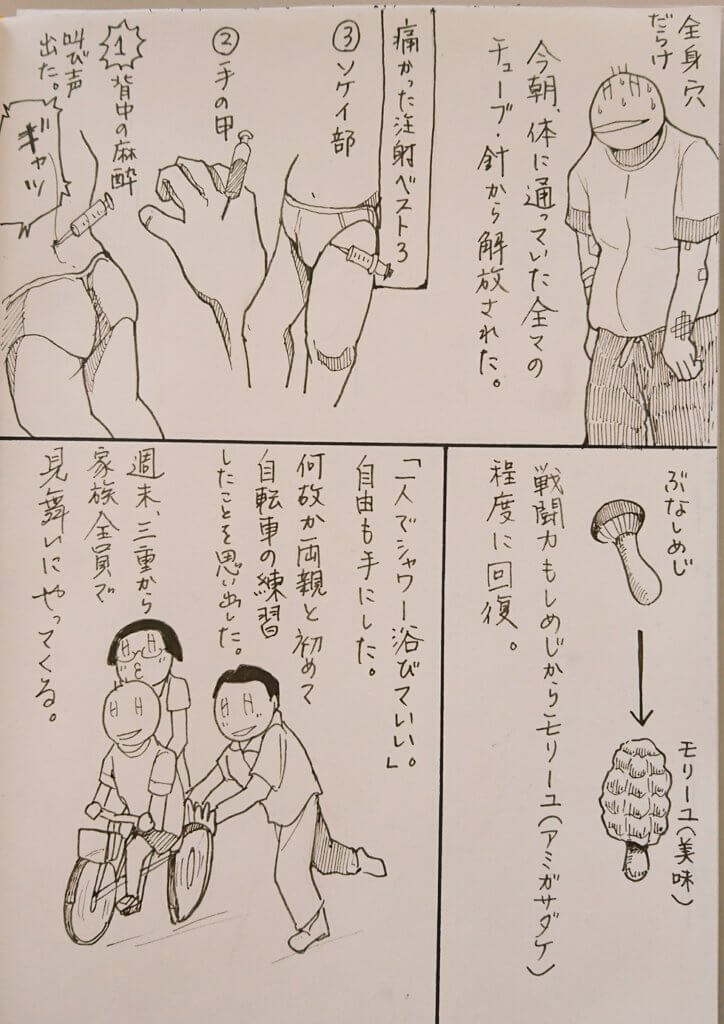 全身穴
だらけ
今朝、体に通っていた全ての
チューブ・針から解放された。
痛かった注射ベスト3
③ソケイ部
②手の甲
①背中の麻酔
叫び声
出た。
ギャッ
ぶなしめじ
モリーユ(美味)
戦闘力もしめじからモリーユ(アミガサダケ)
程度に回復。
「一人でシャワー浴びていい。」
自由も手にした。
何故か両親と初めて
自転車の練習
したことを思い出した。
週末、三重から
家族全員で
見舞いにやってくる。